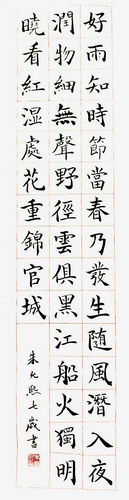 好雨知時節當春乃發生随風潛入夜
潤物細無聲野徑雲俱黑江船火獨明
曉看紅湿處花重錦官城
朱允熙七歲書